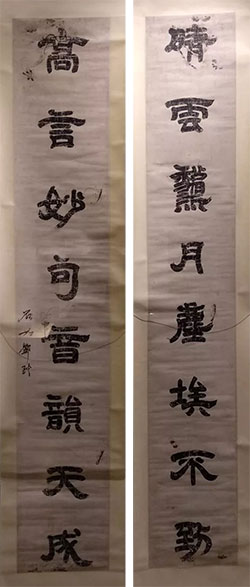 晴雲龝月塵埃不到
高言妙句音韻天成
石如鄧琰